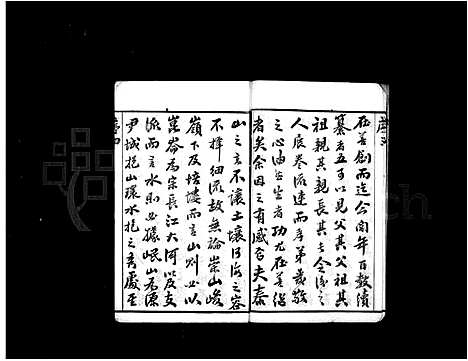 在善創而迄公閱年百數續
纂者五可以見父其父祖其
祖親其親長其長令後之
人展卷流連而孝弟義敬
之心油然生者功尤在善繼
者矣余因之有感焉夫泰
山之言不讓土壤河海之容
不擇細流故無論崇山峻
嶺下及培塿而言山則必以
崑崙為宗長江大河以及支
派而言水則必據岷山為源
尹城抱山環水抱之秀處至